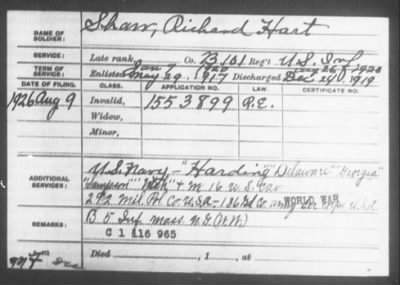 NAME OF SOLDIER: Shaw, Richard Hart
SERVICE: Late rank Co. B 101 Reg't U.S. Inf
TERM OF SERVICE: Jan 7 1920 Aug 26 1920
Enlisted May 29, 1917 Discharged Dec 24, 1919
DATE OF FILING. CLASS. APPLICATION NO. LAW. CERTIFICATE NO.
1926 Aug 9 Invalid, 1553899 P.E.
Widow,
Minor,
ADDITIONAL SERVICES: U.S. Navy - "Harding" "Delaware" "Georgia"
"Sampson" "Utah" + M 16 U.S. Cav
292 Mil. Pol. Co. U.S.A. - 136
WORLD WAR
REMARKS: B 5 Inf. Mass. N.G. (W.W.)
C 1 116 965
Died , 1 , at